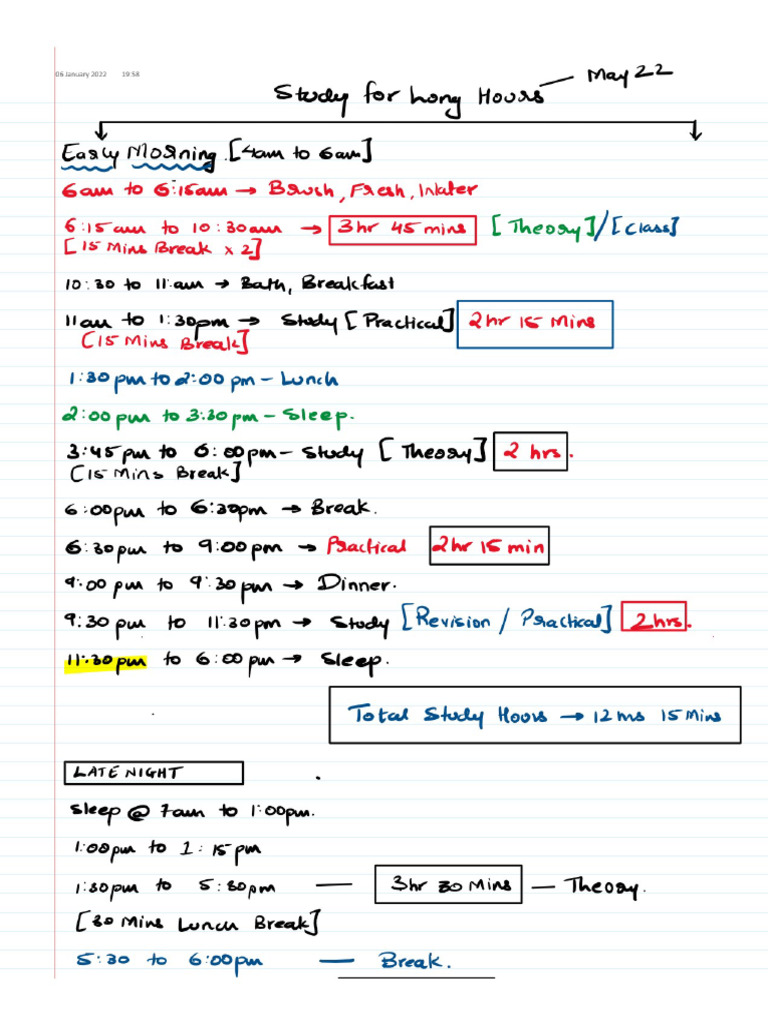 06 January 2022 19:58
Study for Long Hours — May 22
Early Morning [4am to 6am]
6am to 6:15am → Brush, Fresh, Water
6:15am to 10:30am → 3hr 45 mins [Theory]/[Class]
[15 Mins Break x 2]
10:30 to 11am → Bath, Breakfast
11am to 1:30pm → Study [Practical] 2hr 15 Mins
[15 Mins Break]
1:30pm to 2:00 pm - Lunch
2:00pm to 3:30pm - Sleep.
3:45pm to 6:00pm - Study [Theory] 2 hrs.
[15 Mins Break]
6:00pm to 6:30pm → Break.
6:30pm to 9:00pm → Practical 2hr 15 min
9:00 pm to 9:30pm → Dinner.
9:30 pm to 11:30pm → Study [Revision / Practical] 2hrs.
11:30pm to 6:00pm → Sleep.
Total Study Hours → 12 hrs 15 Mins
LATE NIGHT
Sleep @ 7am to 1:00pm.
1:00pm to 1:15pm
1:30pm to 5:30pm — 3hr 30 Mins — Theory.
[30 Mins Lunch Break]
5:30 to 6:00pm — Break.